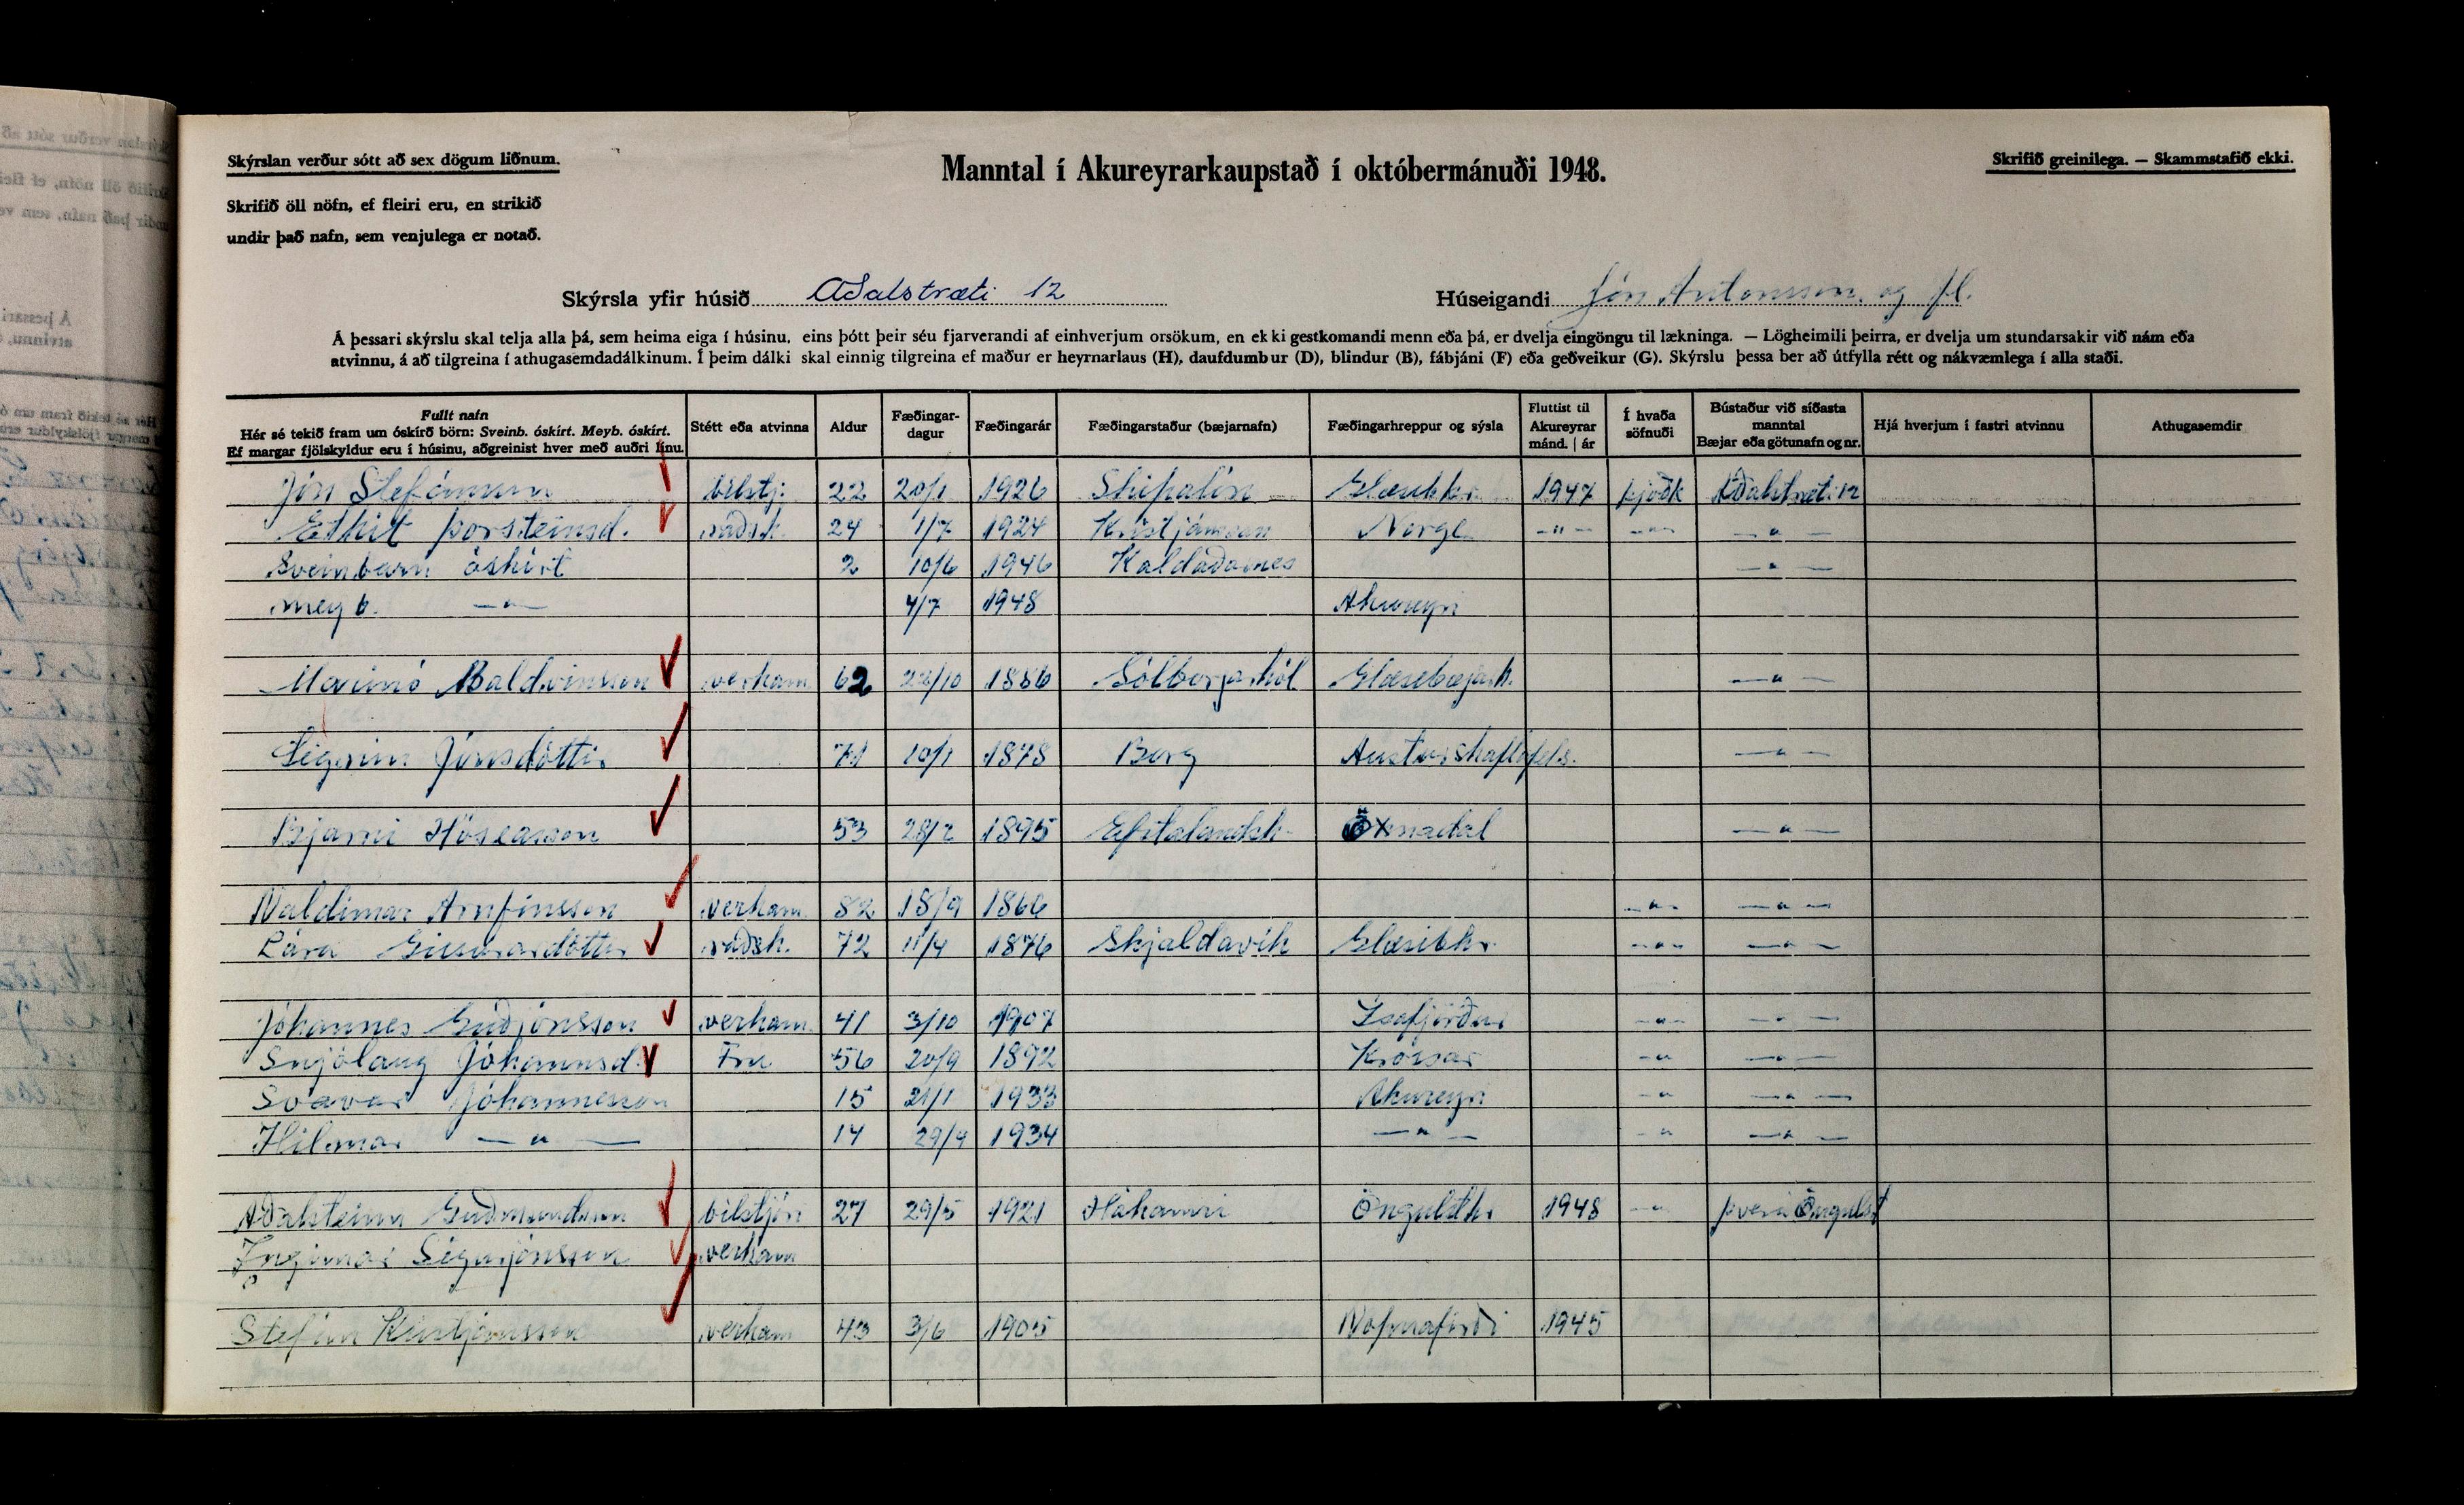 Skýrslan verður sótt að sex dögum liðnum.
Manntal í Akureyrarkaupstað í októbermánuði 1948.
Skrifið greinilega. — Skammstafið ekki.
Skrifið öll nöfn, ef fleiri eru, en strikið
undir það nafn, sem venjulega er notað.
Skýrsla yfir húsið Aðalstræti 12 Húseigandi Jón Antonsson og fl.
Á þessari skýrslu skal telja alla þá, sem heima eiga í húsinu, eins þótt þeir séu fjarverandi af einhverjum orsökum, en ekki gestkomandi menn eða þá, er dvelja eingöngu til lækninga. — Lögheimili þeirra, er dvelja um stundarsakir við nám eða
atvinnu, á að tilgreina í athugasemdadálkinum. Í þeim dálki skal einnig tilgreina ef maður er heyrnarlaus (H), daufdumbur (D), blindur (B), fábjáni (F) eða geðveikur (G). Skýrslu þessa ber að útfylla rétt og nákvæmlega í alla staði.
Fullt nafn
Hér sé tekið fram um óskírð börn: Sveinb. óskírt. Meyb. óskírt.
Ef margar fjölskyldur eru í húsinu, aðgreinist hver með auðri línu.
Stétt eða atvinna
Aldur
Fæðingar-
dagur
Fæðingarár
Fæðingarstaður (bæjarnafn)
Fæðingarhreppur og sýsla
Fluttist til
Akureyrar
mánd. | ár
Í hvaða
söfnuði
Bústaður við síðasta
manntal
Bæjar eða götunafn og nr.
Hjá hverjum í fastri atvinnu
Athugasemdir
Jón Stefánsson bílstj. 22 20/1 1926 Skipalón Glæsibhr. 1947 þjóðk Aðalstræti 12
Þorsteinsd. ráðsk. 24 1/7 1924 Kristjánsson Norge —"— —"— —"—
Sveinbarn óskírt 2 10/6 1946 Kaldaðarnes —"—
Meyb. —"— 4/7 1948 Akureyri
Marinó Baldvinsson verkam. 62 22/10 1886 Sólborgarhól Glæsebæjarh. —"—
Sigurín Jónsdóttir 71 10/1 1878 Borg Austurskaftafels. —"—
Bjarni Hóseasson 53 28/2 1895 Öxnadal —"—
Valdimar Arnfinsson verkam. 82 18/9 1866 —"— —"—
Lára Gunnarsdóttir ráðsk. 72 11/4 1876 Skjaldavík Glæsibhr. —"— —"—
Jóhannes Guðjónsson verkam. 41 3/10 1907 Ísafjörður —"— —"—
Snjólaug Jóhannsd. Frú 56 20/9 1892 Krossar —"— —"—
Svavar Jóhannesson 15 21/1 1933 Akureyri —"— —"—
Hilmar —"— 14 29/9 1934 —"— —"— —"—
Aðalsteinn Guðmundsson bílstjóri 27 29/5 1921 Háhamri Öngulsth. 1948 —"— Þverá Öngulst
Ingimar Sigurjónsson verkam
Stefán Kristjánsson verkam 43 3/6 1905 1945